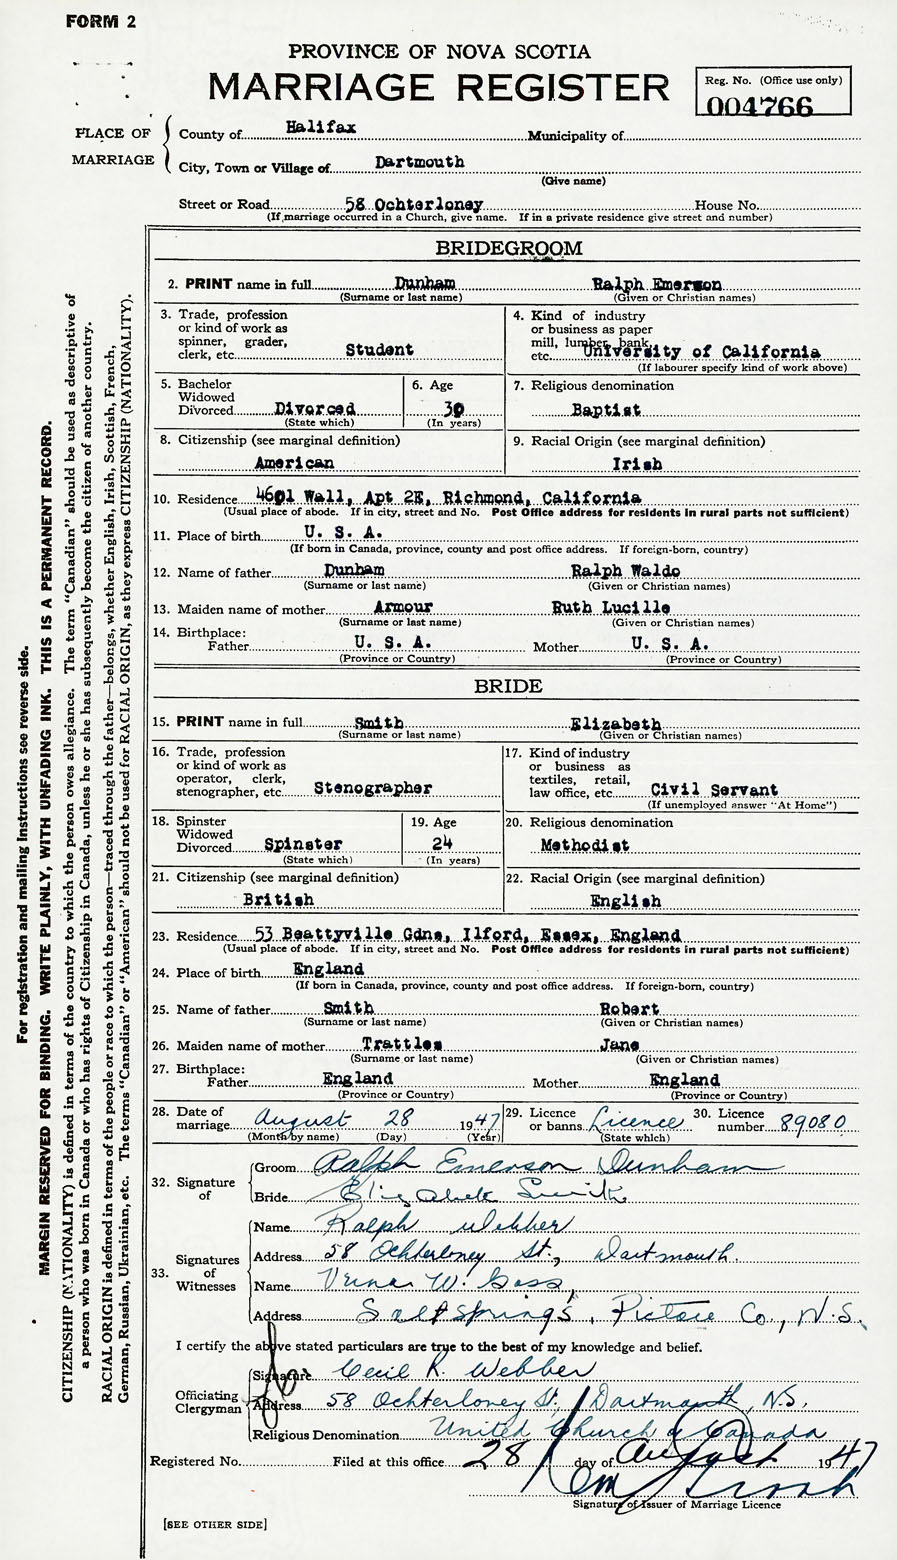 FORM 2
PROVINCE OF NOVA SCOTIA
MARRIAGE REGISTER
Reg. No. (Office use only)
004766
PLACE OF MARRIAGE
County of Halifax Municipality of
City, Town or Village of Dartmouth
(Give name)
Street or Road 58 Ochterloney House No.
(If marriage occurred in a Church, give name. If in a private residence give street and number)
BRIDEGROOM
2. PRINT name in full Dunham Ralph Emerson
(Surname or last name) (Given or Christian names)
3. Trade, profession
or kind of work as
spinner, grader,
clerk, etc. Student
4. Kind of industry
or business as paper
mill, lumber, bank,
etc. University of California
(If labourer specify kind of work above)
5. Bachelor
Widowed
Divorced Divorced
(State which)
6. Age
30
(In years)
7. Religious denomination
Baptist
8. Citizenship (see marginal definition)
American
9. Racial Origin (see marginal definition)
Irish
10. Residence 4601 Wall, Apt 2E, Richmond, California
(Usual place of abode. If in city, street and No. Post Office address for residents in rural parts not sufficient)
11. Place of birth U. S. A.
(If born in Canada, province, county and post office address. If foreign-born, country)
12. Name of father Dunham Ralph Waldo
(Surname or last name) (Given or Christian names)
13. Maiden name of mother Armour Ruth Lucille
(Surname or last name) (Given or Christian names)
14. Birthplace:
Father U. S. A. Mother U. S. A.
(Province or Country) (Province or Country)
BRIDE
15. PRINT name in full Smith Elizabeth
(Surname or last name) (Given or Christian names)
16. Trade, profession
or kind of work as
operator, clerk,
stenographer, etc. Stenographer
17. Kind of industry
or business as
textiles, retail,
law office, etc. Civil Servant
(If unemployed answer "At Home")
18. Spinster
Widowed
Divorced Spinster
(State which)
19. Age
24
(In years)
20. Religious denomination
Methodist
21. Citizenship (see marginal definition)
British
22. Racial Origin (see marginal definition)
English
23. Residence 53 Beattyville Gdns, Ilford, Essex, England
(Usual place of abode. If in city, street and No. Post Office address for residents in rural parts not sufficient)
24. Place of birth England
(If born in Canada, province, county and post office address. If foreign-born, country)
25. Name of father Smith Robert
(Surname or last name) (Given or Christian names)
26. Maiden name of mother Trattles Jane
(Surname or last name) (Given or Christian names)
27. Birthplace:
Father England Mother England
(Province or Country) (Province or Country)
28. Date of
marriage August 28 1947
(Month by name) (Day) (Year)
29. Licence
or banns Licence
(State which)
30. Licence
number 89080
32. Signature of
Groom Ralph Emerson Dunham
Bride Elizabeth Smith
33. Signatures of Witnesses
Name Ralph Webber
Address 58 Ochterloney St., Dartmouth.
Name W. Goss
Address Saltsprings, Pictou Co., N.S.
I certify the above stated particulars are true to the best of my knowledge and belief.
Officiating Clergyman
Signature Cecil R. Webber
Address 58 Ochterloney St., Dartmouth, N.S.
Religious Denomination United Church of Canada
Registered No. Filed at this office 28 day of August 1947
Signature of Issuer of Marriage Licence
[SEE OTHER SIDE]
For registration and mailing instructions see reverse side.
MARGIN RESERVED FOR BINDING. WRITE PLAINLY, WITH UNFADING INK. THIS IS A PERMANENT RECORD.
CITIZENSHIP (NATIONALITY) is defined in terms of the country to which the person owes allegiance. The term "Canadian" should be used as descriptive of
a person who was born in Canada or who has rights of Citizenship in Canada, unless he or she has subsequently become the citizen of another country.
RACIAL ORIGIN is defined in terms of the people or race to which the person—traced through the father—belongs, whether English, Irish, Scottish, French,
German, Russian, Ukrainian, etc. The terms "Canadian" or "American" should not be used for RACIAL ORIGIN, as they express CITIZENSHIP (NATIONALITY).